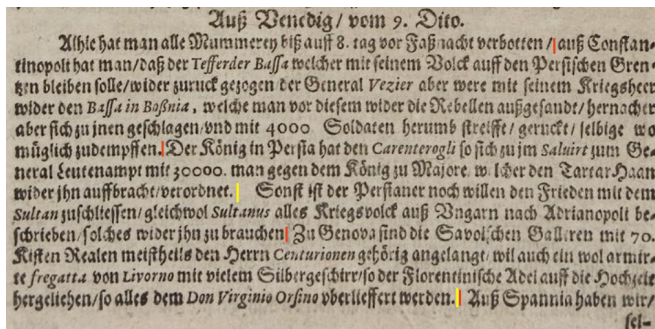 Auß Venedig/ vom 9. Dito.
Alhie hat man alle Mummerey biß auff 8. tag vor Faßnacht verbotten/ auß Constan-
tinopoli hat man/ daß der Tefferder Bassa welcher mit seinem Volck auff den Persischen Gren-
tzen bleiben solle/ wider zuruck gezogen der General Vezier aber were mit seinem Kriegsheer
wider den Bassa in Boßnia, welche man vor diesem wider die Rebellen außgesandt/ hernacher
aber sich zu jnen geschlagen/ vnd mit 4000 Soldaten herumb streifft/ geruckt/ selbige wo
müglich zudempffen. Der König in Persia hat den Carenterogli so sich zu jm Salvirt zum Ge-
neral Leutenampt mit 30000. man gegen dem König zu Majore, welcher den Tartar Haan
wider jhn auffbracht/ verordnet. Sonst ist der Persianer noch willen den Frieden mit dem
Sultan zuschliessen/ gleichwol Sultanus alles Kriegsvolck auß Vngarn nach Adrianopoli be-
schrieben/ solches wider jhn zu brauchen Zu Genova sind die Savoischen Galleren mit 70.
Kisten Realen meistheils den Herrn Centurionen gehörig angelangt/ wil auch ein wol armir-
te fregatta von Livorno mit vielem Silbergeschirr/ so der Florentinische Adel auff die Hochzeit
hergeliehen/ so alles dem Don Virginio Orsino vberlieffert werden. Auß Spannia haben wir/
sel-